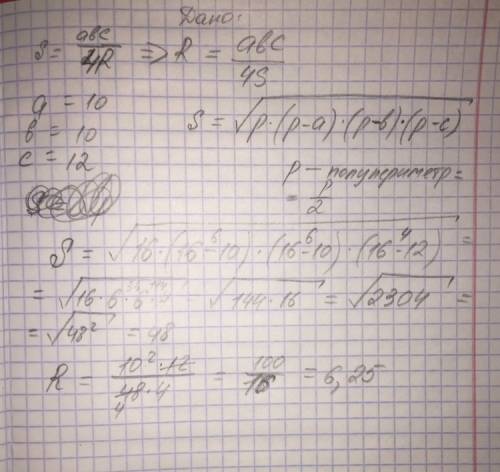 Дано:
S = abc / 4R => R = abc / 4S
a = 10
в = 10
c = 12
S = √p·(p-a)·(p-в)·(p-c)
p - полупериметр =
= P / 2
S = √16·(16-10)⁶·(16-10)⁶·(16-12)⁴ =
= √144·16 = √2304 =
= √48² = 48
R = 10²·12 / 48·4 = 100 / 16 = 6,25